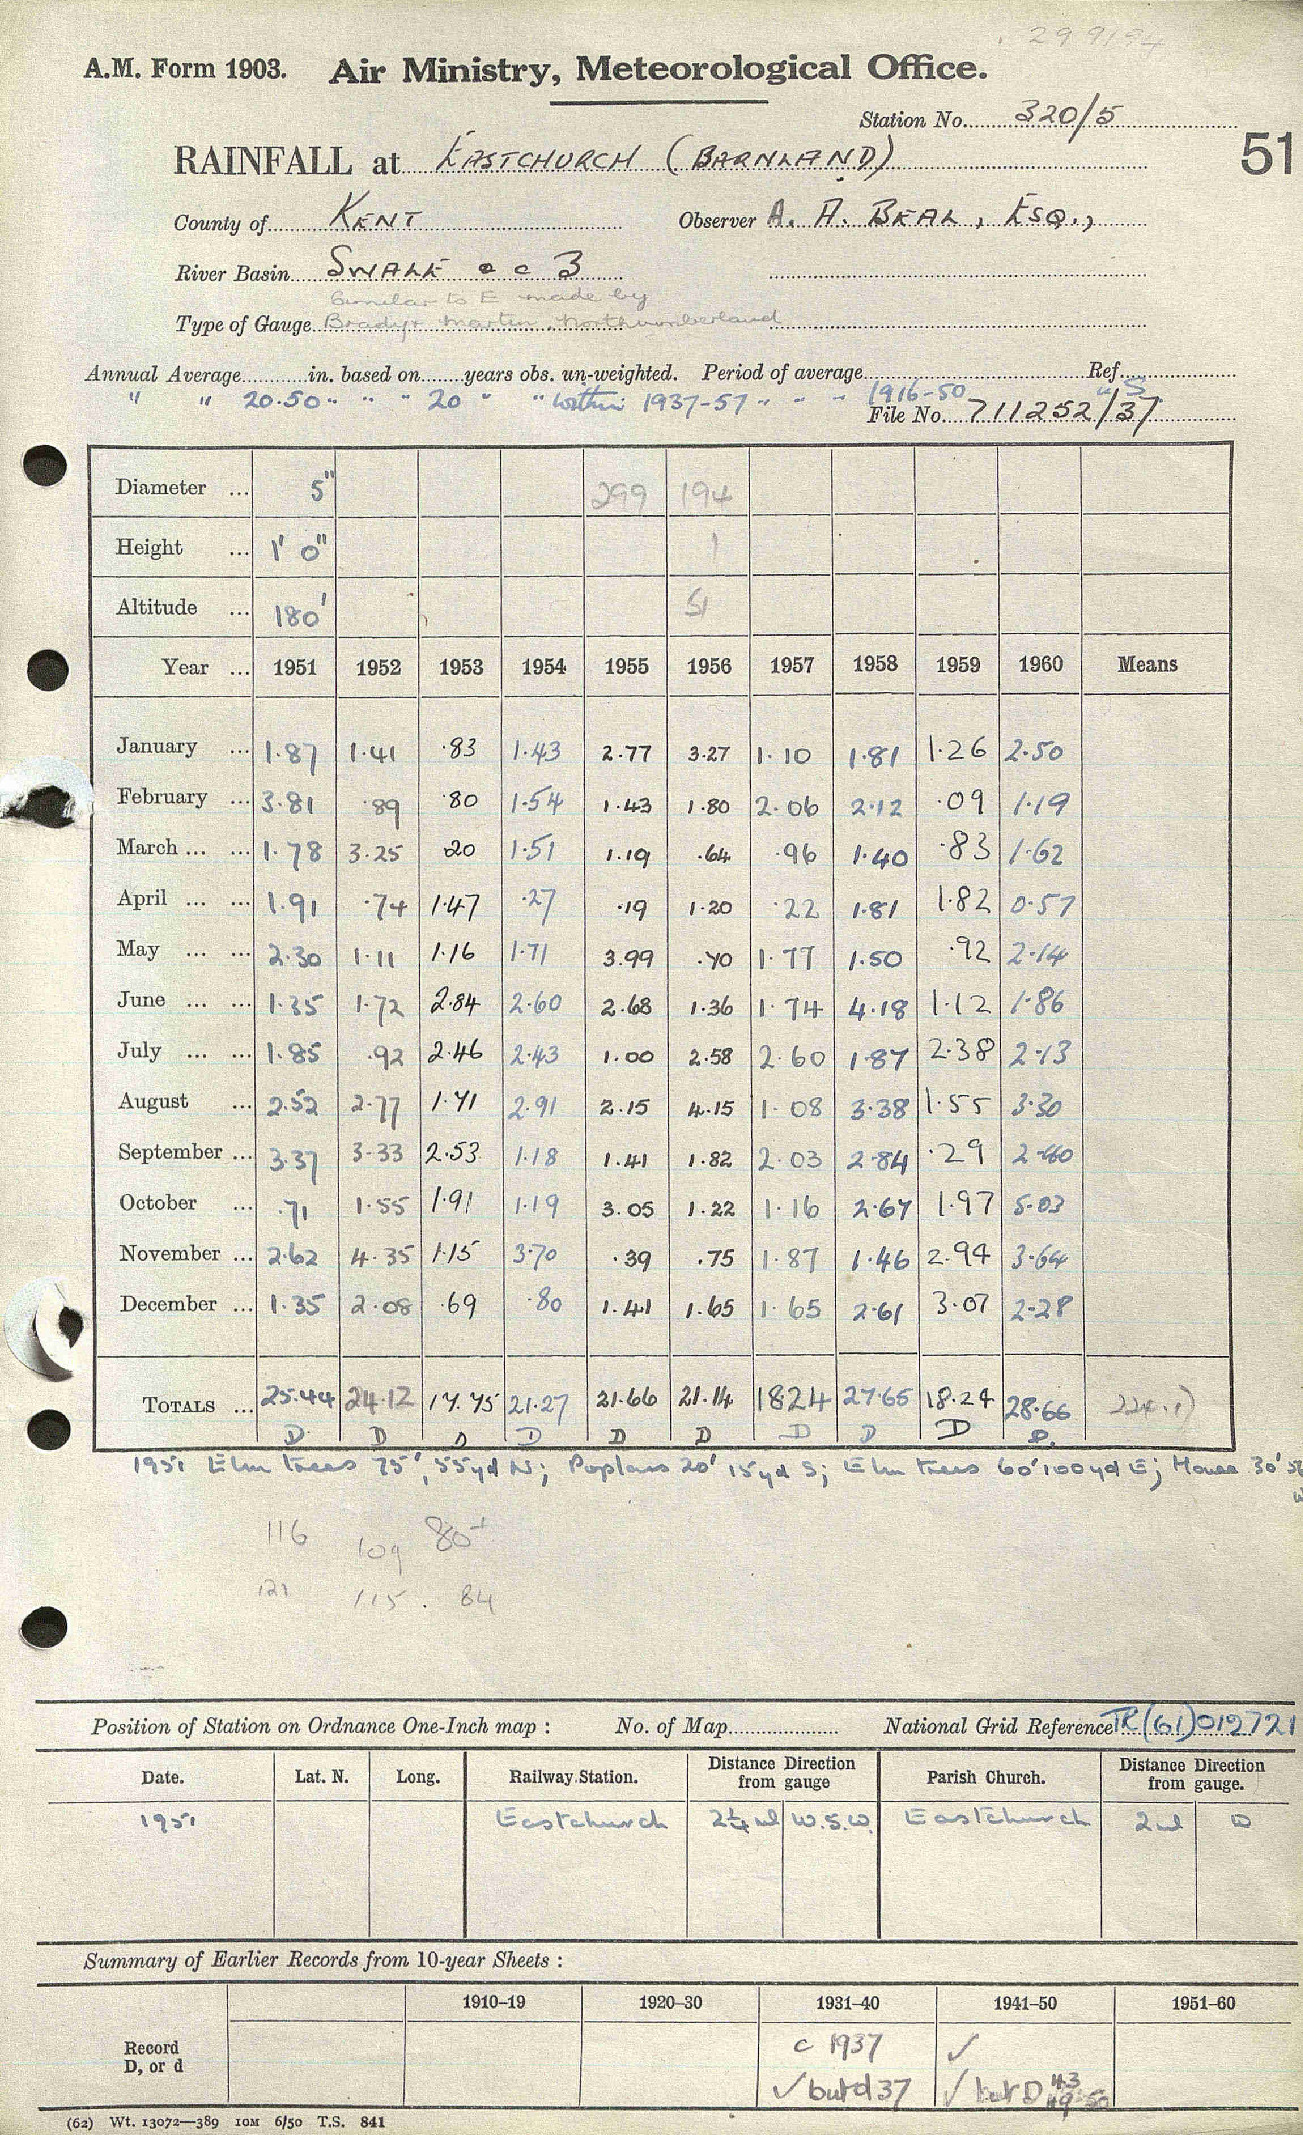 299194
A.M. Form 1903. Air Ministry, Meteorological Office.
Station No. 320/5
RAINFALL at EASTCHURCH (BARNLAND) 51
County of KENT Observer A. A. BEAL, ESQ.,
River Basin SWALE & c 3
Similar to E made by
Type of Gauge Bradyr Martin, Northumberland
Annual Average in. based on years obs. un-weighted. Period of average Ref.
" " 20.50 " " " 20 " " within 1937-57 " " " 1916-50 "S.
File No. 711252/37
Diameter ... 5" 299 194
Height ... 1' 0" 1
Altitude ... 180' 51
Year ... 1951 1952 1953 1954 1955 1956 1957 1958 1959 1960 Means
January ... 1.87 1.41 .83 1.43 2.77 3.27 1.10 1.81 1.26 2.50
February ... 3.81 .89 .80 1.54 1.43 1.80 2.06 2.12 .09 1.19
March ... ... 1.78 3.25 .20 1.51 1.19 .64 .96 1.40 .83 1.62
April ... ... 1.91 .74 1.47 .27 .19 1.20 .22 1.81 1.82 0.57
May ... ... 2.30 1.11 1.16 1.71 3.99 .70 1.77 1.50 .92 2.14
June ... ... 1.35 1.72 2.84 2.60 2.68 1.36 1.74 4.18 1.12 1.86
July ... ... 1.85 .92 2.46 2.43 1.00 2.58 2.60 1.87 2.38 2.13
August ... 2.52 2.77 1.71 2.91 2.15 4.15 1.08 3.38 1.55 3.30
September ... 3.37 3.33 2.53 1.18 1.41 1.82 2.03 2.84 .29 2.40
October ... .71 1.55 1.91 1.19 3.05 1.22 1.16 2.67 1.97 5.03
November ... 2.62 4.35 1.15 3.70 .39 .75 1.87 1.46 2.94 3.64
December ... 1.35 2.08 .69 .80 1.41 1.65 1.65 2.61 3.07 2.28
TOTALS ... 25.44 24.12 17.75 21.27 21.66 21.14 18.24 27.65 18.24 28.66
D D D D D D D D D D.
1951 Elm trees 75', 55yd N; Poplars 20' 15yd S; Elm trees 60' 100yd E; House 30'
116 109 80+
121 115. 84
Position of Station on Ordnance One-Inch map : No. of Map National Grid Reference TR(61)012721
Date. Lat. N. Long. Railway Station. Distance Direction from gauge Parish Church. Distance Direction from gauge.
1951 Eastchurch 2¼ml W.S.W. Eastchurch 2ml W
Summary of Earlier Records from 10-year Sheets :
1910–19 1920–30 1931–40 1941–50 1951–60
Record D, or d
c 1937 ✓
✓ but d 37 ✓ but D 43 49-50
(62) Wt. 13072—389 10M 6/50 T.S. 841